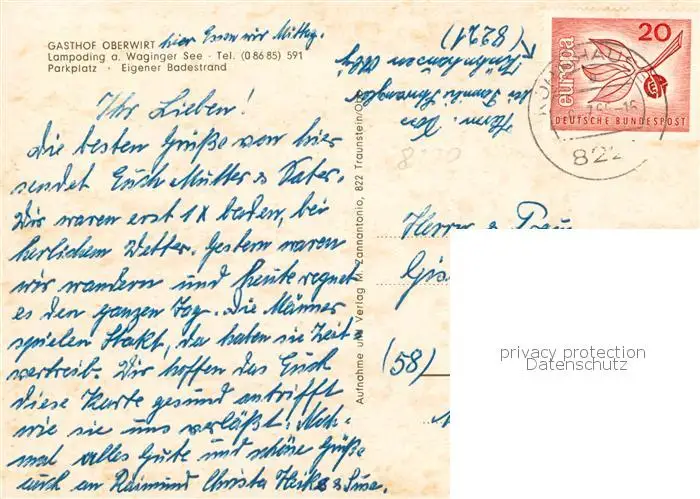 GASTHOF OBERWIRT hier Essen wir Mittag.
Lampoding a. Waginger See · Tel. (0 86 85) 591
Parkplatz · Eigener Badestrand
Ihr Lieben!
Die besten Grüße von hier
sendet Euch Mutter & Vater.
Wir waren erst 1x baden, bei
herlichem Wetter. Gestern waren
wir wandern und heute regnet
es den ganzen Tag. Die Männer
spielen Skakt, da haben sie Zeit-
vertreib. Wir hoffen das Euch
diese Karte gesund antrifft
wie sie uns verläßt. Noch-
mal alles Gute und schöne Grüße
auch an Raimund Christa Heike & Suse.
Aufnahme und Verlag M. Zannantonio, 822 Traunstein/Obb.
(8221)
20
europa
DEUTSCHE BUNDESPOST
822
Herrn & Frau
(58)
privacy protection
Datenschutz